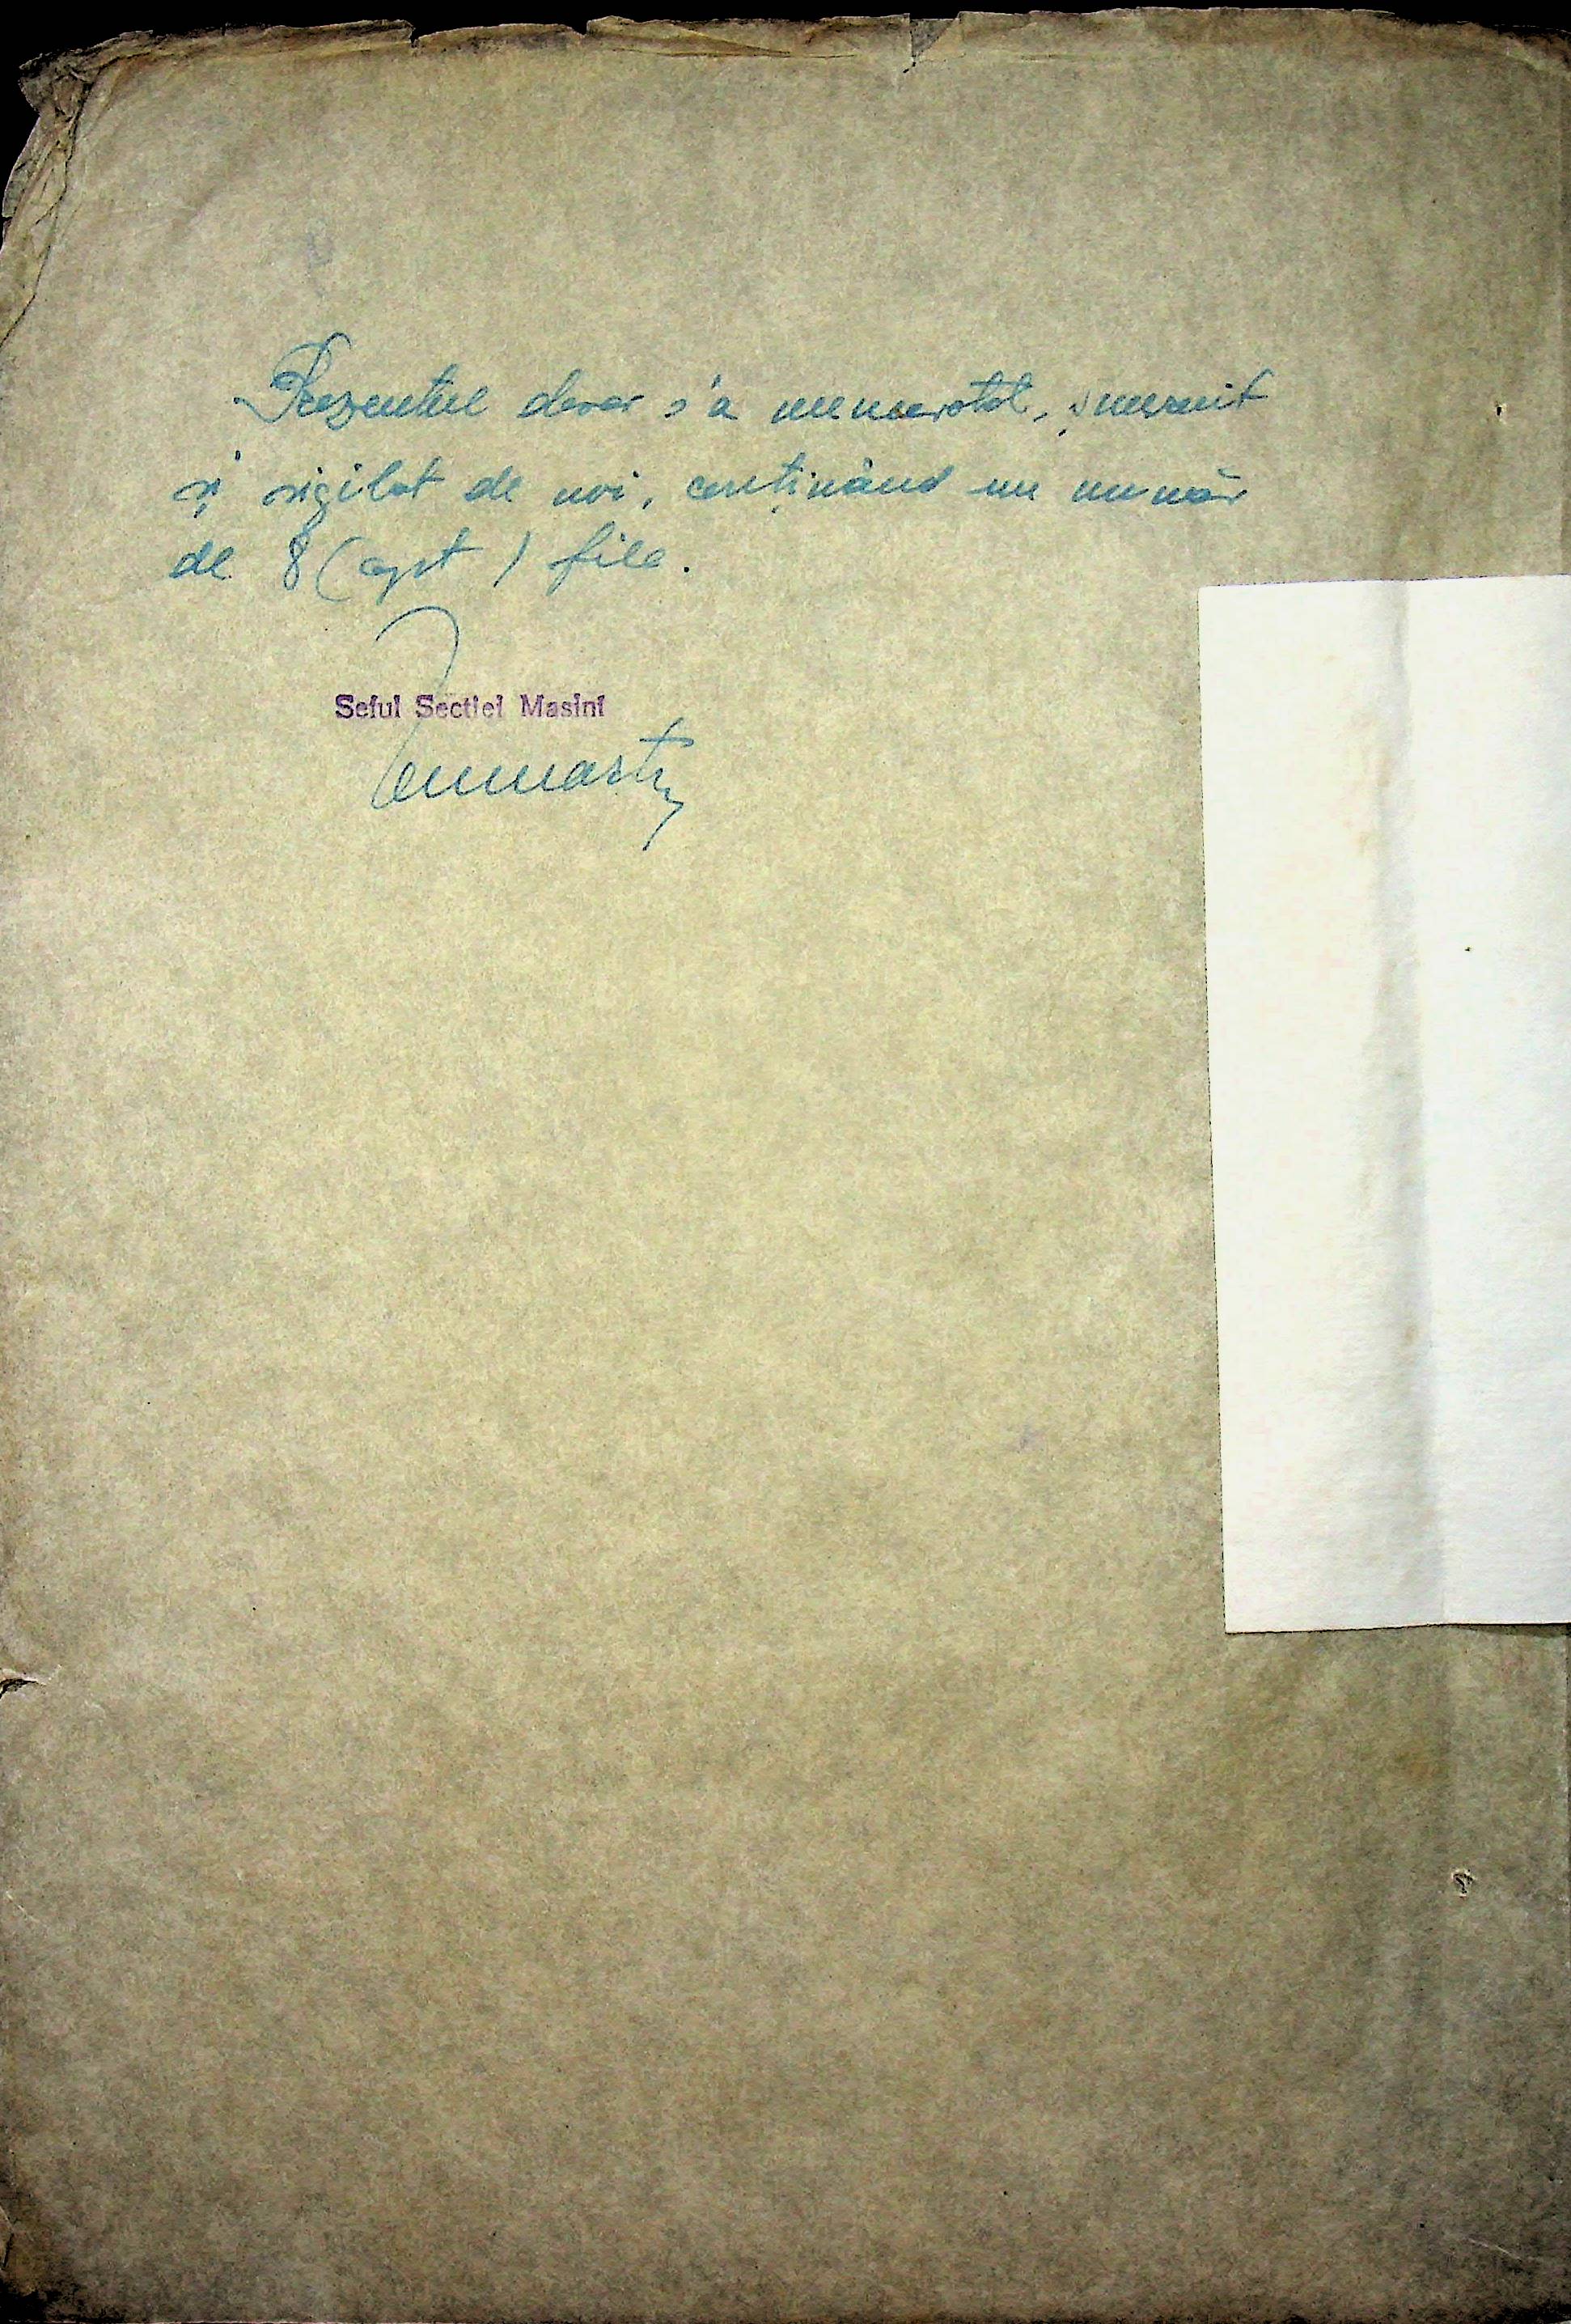 Prezentul dosar s'a numerotat, șnuruit
și sigilat de noi, conținând un număr
de 8 (opt) file.
Seful Sectiei Masini